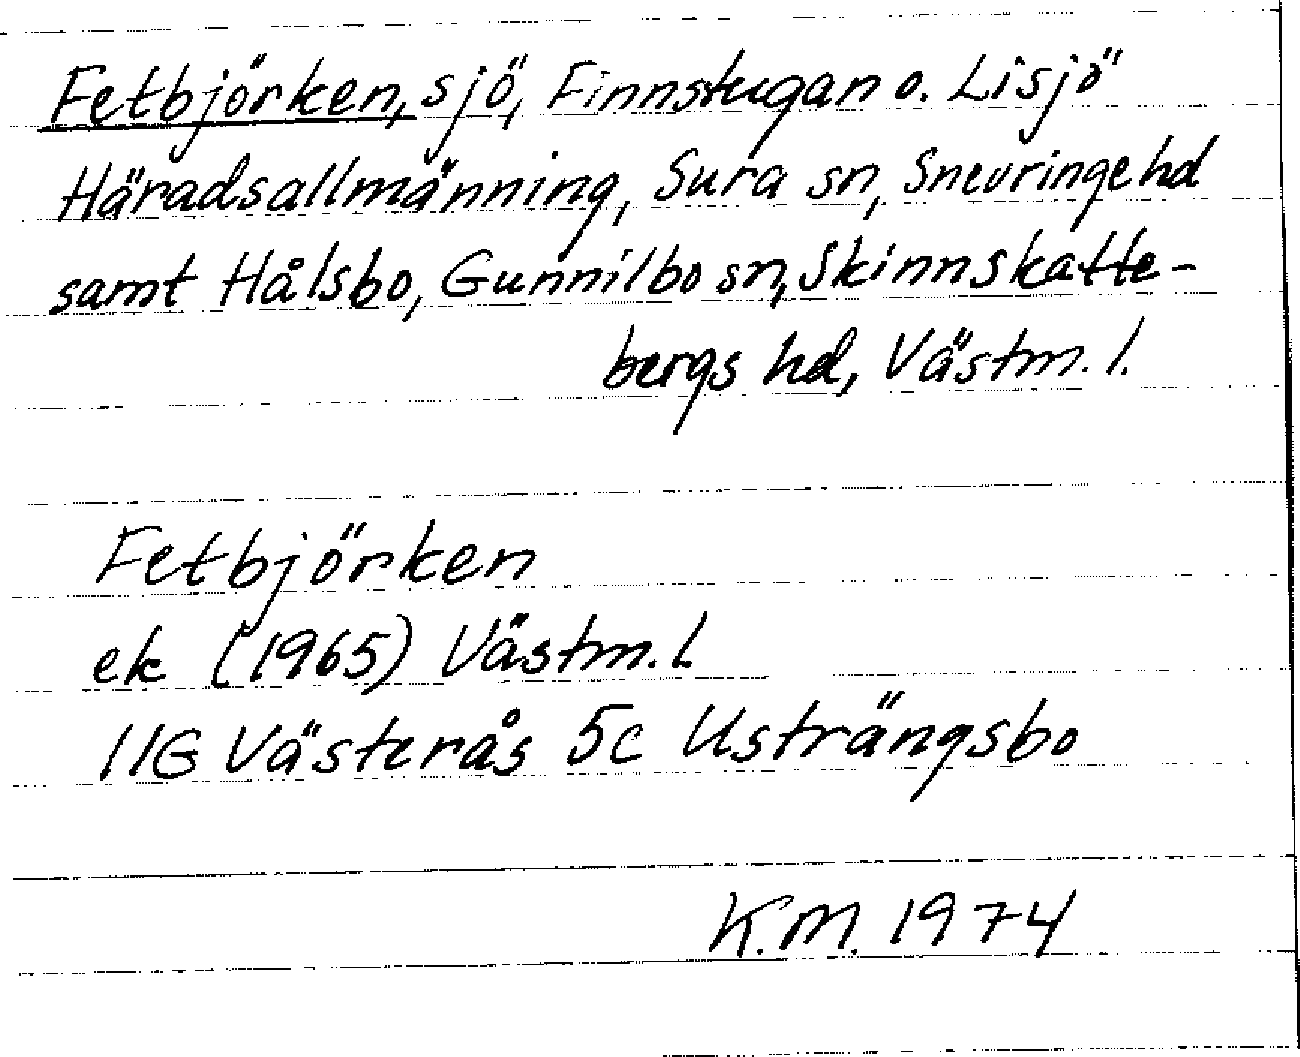 Fetbjörken, sjö, Finnstugan o. Lisjö
Häradsallmänning, Sura sn, Snevringe hd
samt Hålsbo, Gunnilbo sn, Skinnskatte-
bergs hd, Västm. l.
Fetbjörken
ek (1965) Västm. l.
11G Västerås 5c Usträngsbo
K.M. 1974